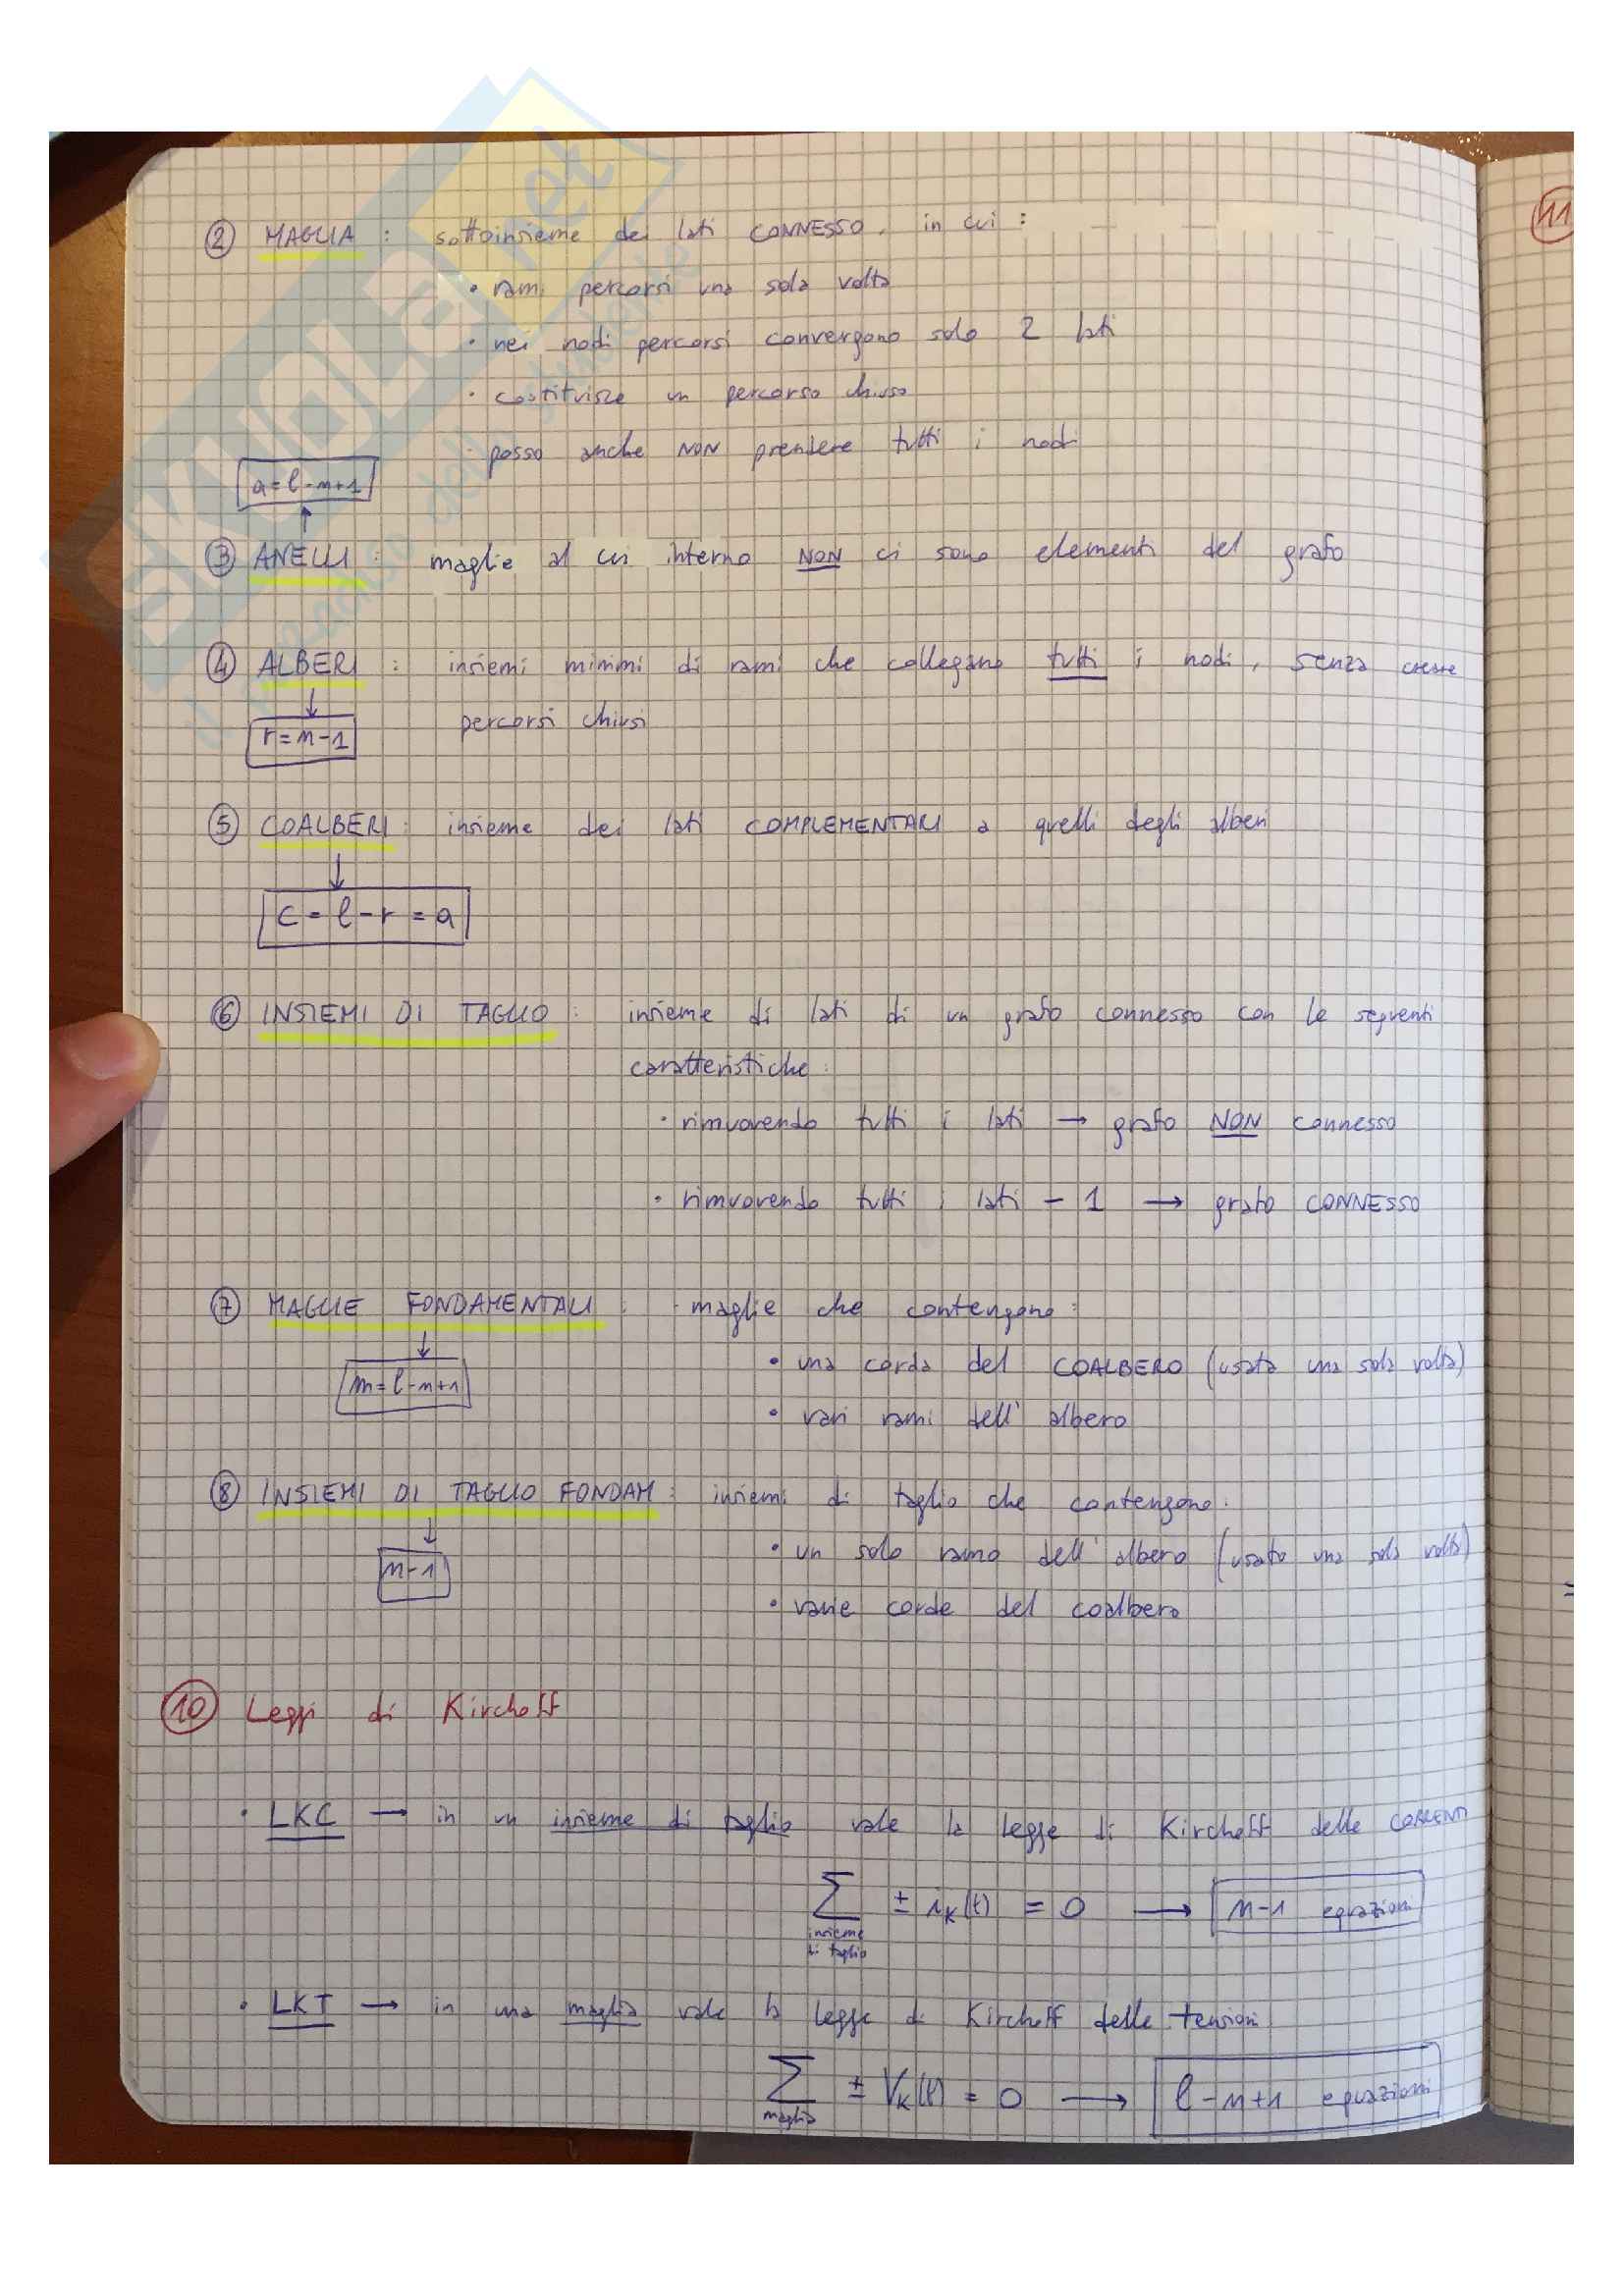 ② MAGLIA : sottoinsieme dei lati CONNESSO, in cui :
• rami percorsi una sola volta
• nei nodi percorsi convergono solo 2 lati
• costituisce un percorso chiuso
• posso anche NON prendere tutti i nodi
a = l - n + 1
↑
③ ANELLI : maglie al cui interno NON ci sono elementi del grafo
④ ALBERI : insiemi minimi di rami che collegano tutti i nodi, senza creare
percorsi chiusi
↓
r = n - 1
⑤ COALBERI : insieme dei lati COMPLEMENTARI a quelli degli alberi
↓
c = l - r = a
⑥ INSIEMI DI TAGLIO : insieme di lati di un grafo connesso con le seguenti
caratteristiche :
• rimuovendo tutti i lati → grafo NON connesso
• rimuovendo tutti i lati - 1 → grafo CONNESSO
⑦ MAGLIE FONDAMENTALI : maglie che contengono :
• una corda del COALBERO (usata una sola volta)
↓
m = l - n + 1
• vari rami dell' albero
⑧ INSIEMI DI TAGLIO FONDAM : insiemi di taglio che contengono :
• un solo ramo dell' albero (usato una sola volta)
↓
n - 1
• varie corde del coalbero
⑩ Leggi di Kirchoff
• LKC → in un insieme di taglio vale la legge di Kirchoff delle CORRENTI
∑ ± iK(t) = 0 → n-1 equazioni
insieme
di taglio
• LKT → in una maglia vale la legge di Kirchoff delle tensioni
∑ ± VK(t) = 0 → l - n + 1 equazioni
maglia
11
sKUOLa.net